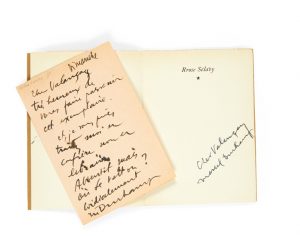 Dimanche
Cher Valançay
très heureux de
vous faire parvenir
cet exemplaire.
et je vous prie
mis en
mon
A bientôt mais
où et ?
cordialement
M Duchamp
Rrose Sélavy
★
Cher Valançay
marcel duchamp